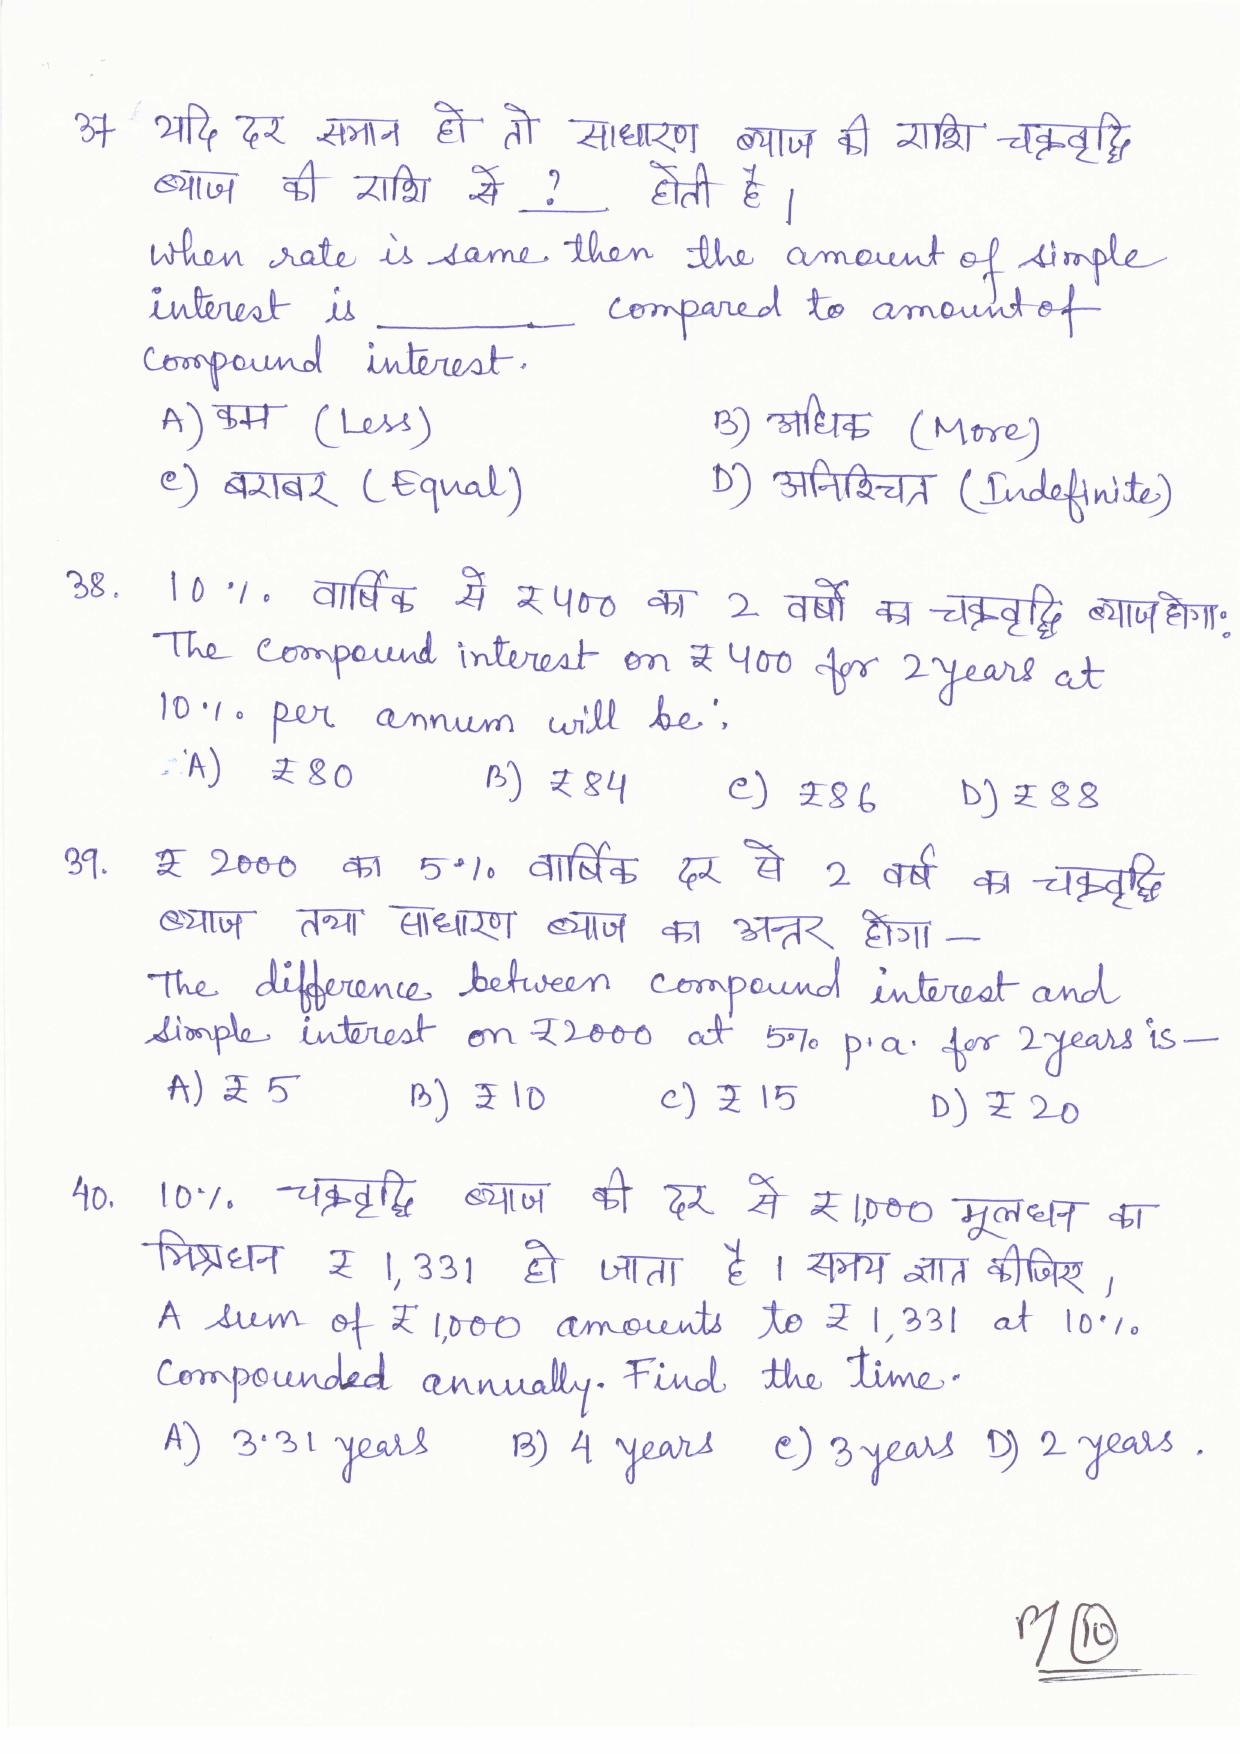 37 यदि दर समान हो तो साधारण ब्याज की राशि चक्रवृद्धि
ब्याज की राशि से __?__ होती है।
when rate is same then the amount of simple
interest is ________ compared to amount of
compound interest.
A) कम (Less) B) अधिक (More)
C) बराबर (Equal) D) अनिश्चित (Indefinite)
38. 10% वार्षिक से ₹400 का 2 वर्षों का चक्रवृद्धि ब्याज होगा:
The compound interest on ₹400 for 2 years at
10% per annum will be:
A) ₹80 B) ₹84 C) ₹86 D) ₹88
39. ₹ 2000 का 5% वार्षिक दर से 2 वर्ष का चक्रवृद्धि
ब्याज तथा साधारण ब्याज का अन्तर होगा —
The difference between compound interest and
simple interest on ₹2000 at 5% p.a. for 2 years is —
A) ₹5 B) ₹10 C) ₹15 D) ₹20
40. 10% चक्रवृद्धि ब्याज की दर से ₹1,000 मूलधन का
मिश्रधन ₹1,331 हो जाता है। समय ज्ञात कीजिए,
A sum of ₹1,000 amounts to ₹1,331 at 10%
compounded annually. Find the time.
A) 3.31 years B) 4 years C) 3 years D) 2 years.
M/10